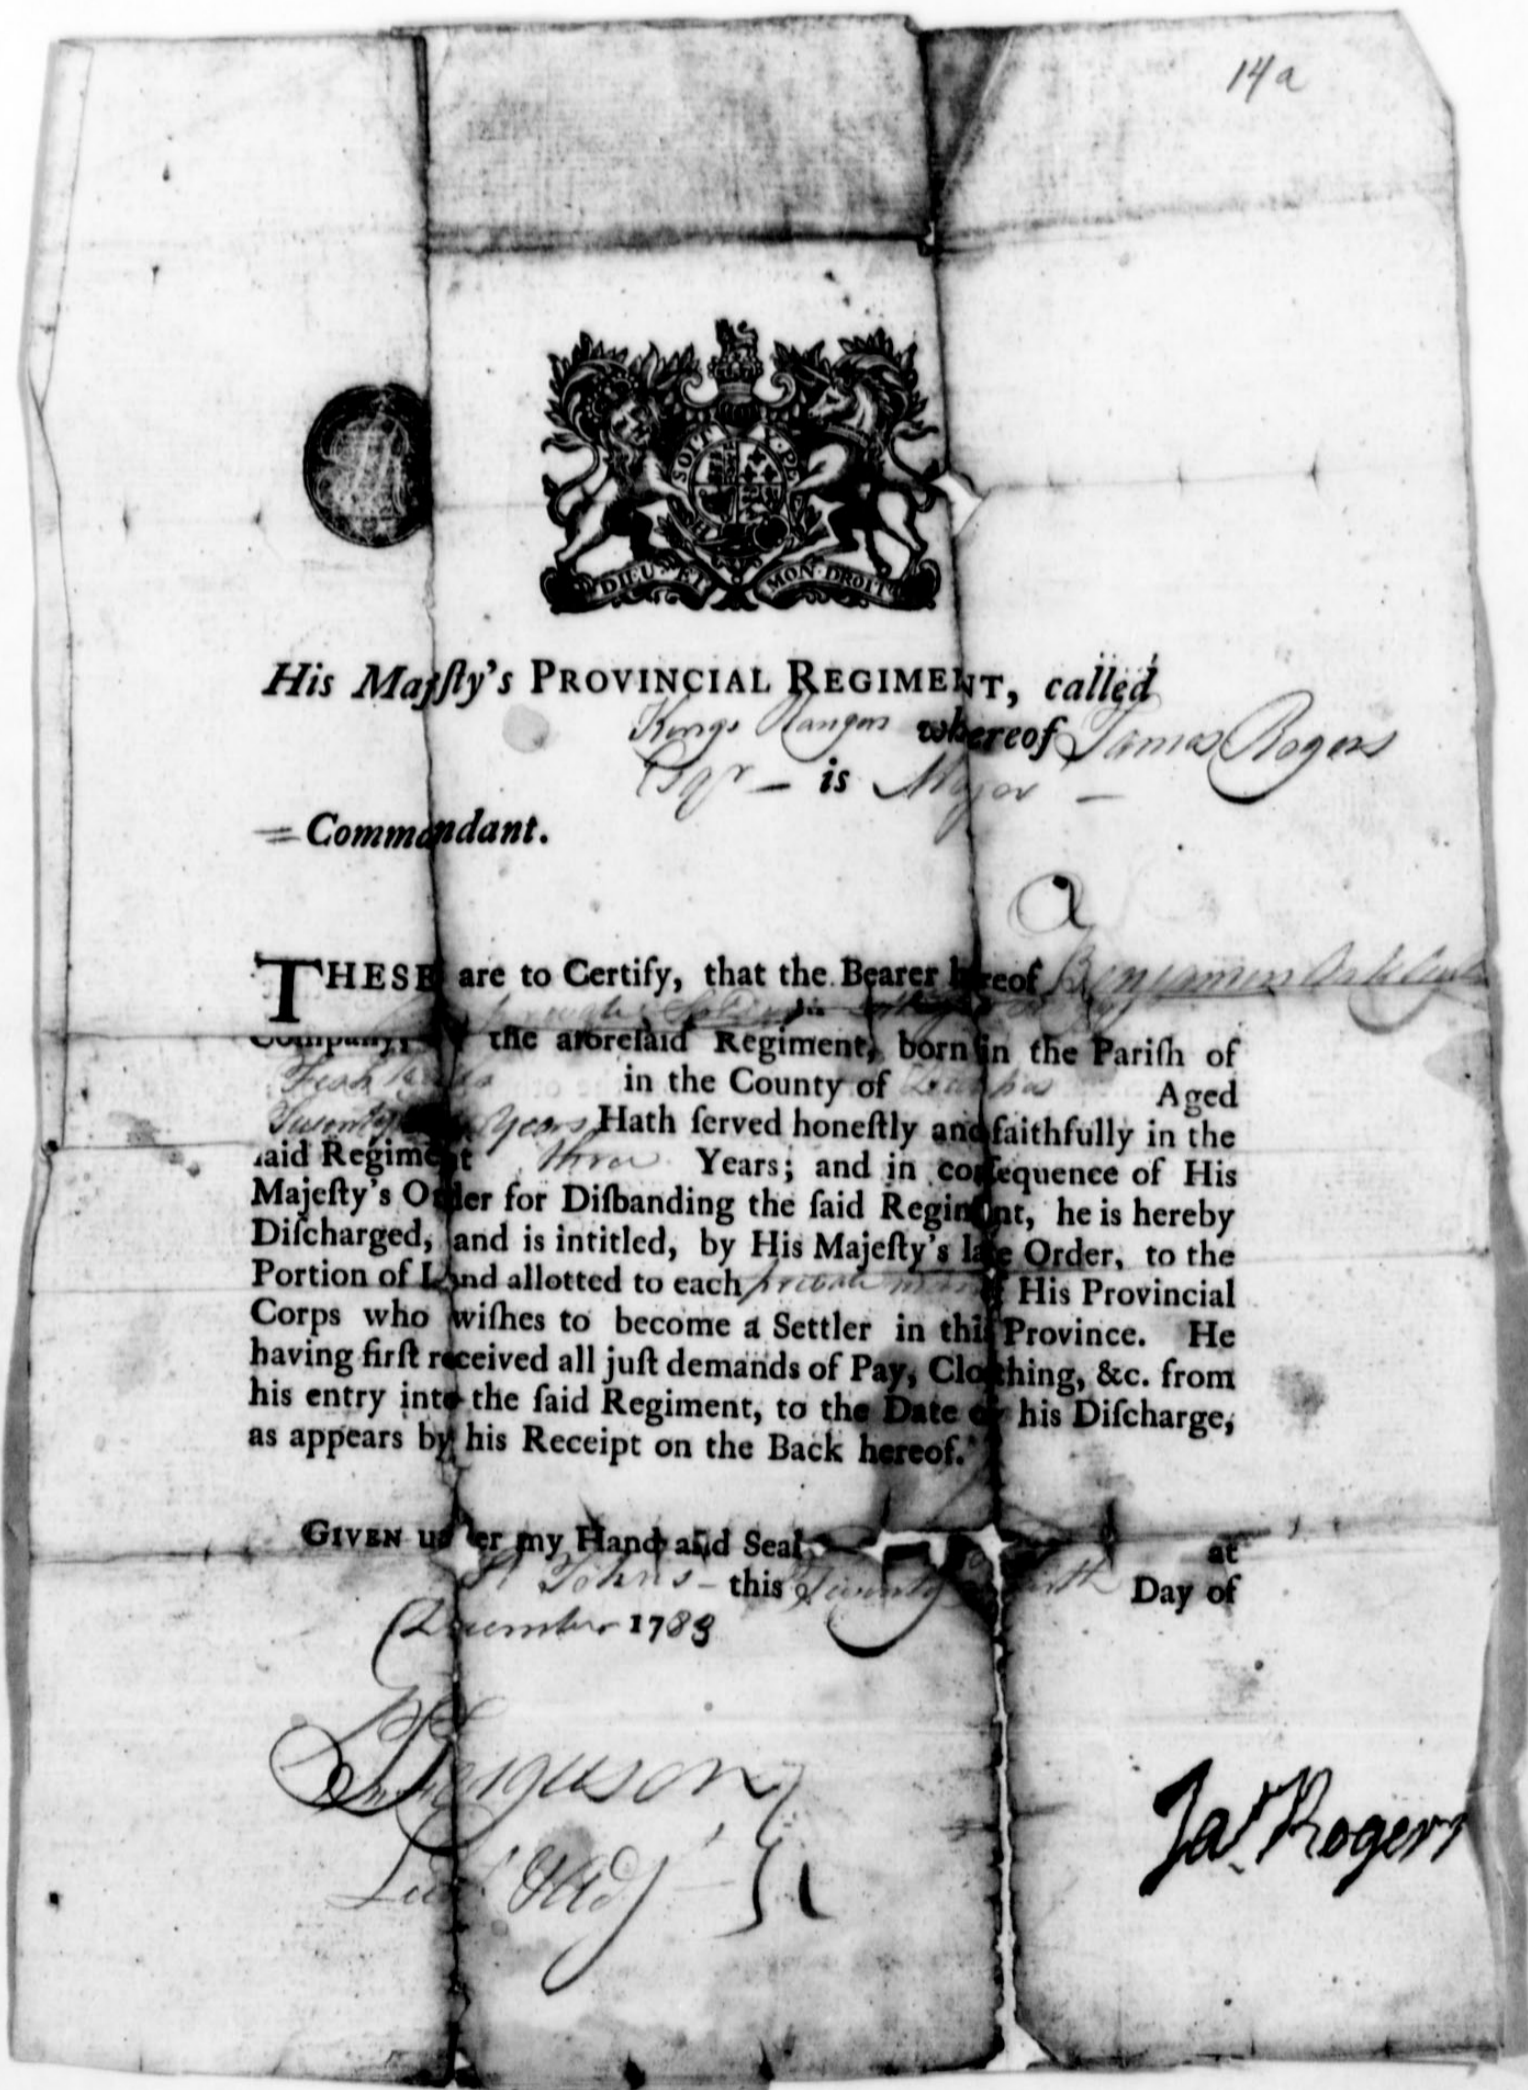 14a
HONI SOIT Y PE
DIEU ET MON DROIT
His Majeſty's PROVINCIAL REGIMENT, called
Kings Rangers whereof James Rogers
Esqr — is Major —
= Commandant.
THESE are to Certify, that the Bearer hereof Benjamin
a private
Company, of the aforeſaid Regiment, born in the Pariſh of
Fish Kills in the County of Aged
Twenty Years Hath ſerved honeſtly and faithfully in the
ſaid Regiment three Years; and in conſequence of His
Majeſty's Order for Diſbanding the ſaid Regiment, he is hereby
Diſcharged, and is intitled, by His Majeſty's late Order, to the
Portion of Land allotted to each private man of His Provincial
Corps who wiſhes to become a Settler in this Province. He
having firſt received all juſt demands of Pay, Cloathing, &c. from
his entry into the ſaid Regiment, to the Date of his Diſcharge,
as appears by his Receipt on the Back hereof.
GIVEN under my Hand and Seal, at
St Johns — this Twenty Day of
December 1783
Ferguson
Lieut & Adjt
Jas Rogers